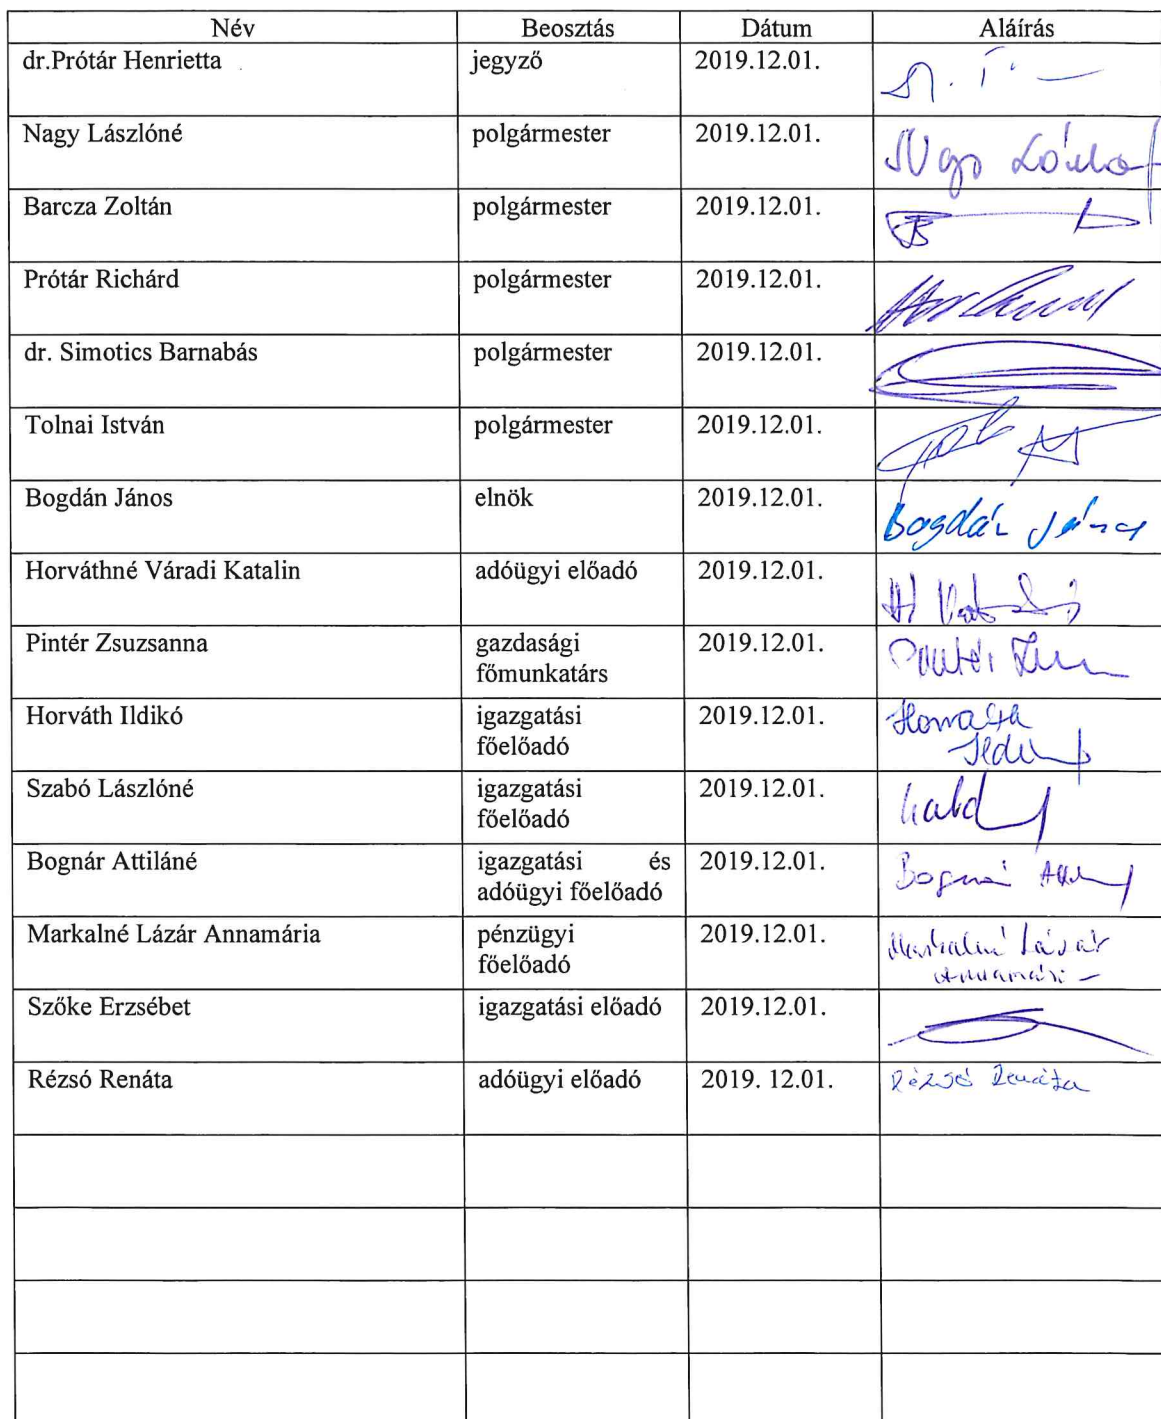 Név Beosztás Dátum Aláírás
dr.Prótár Henrietta jegyző 2019.12.01.
Nagy Lászlóné polgármester 2019.12.01.
Barcza Zoltán polgármester 2019.12.01.
Prótár Richárd polgármester 2019.12.01.
dr. Simotics Barnabás polgármester 2019.12.01.
Tolnai István polgármester 2019.12.01.
Bogdán János elnök 2019.12.01. Bogdán János
Horváthné Váradi Katalin adóügyi előadó 2019.12.01.
Pintér Zsuzsanna gazdasági 2019.12.01.
főmunkatárs
Horváth Ildikó igazgatási 2019.12.01. Horváth
főelőadó
Szabó Lászlóné igazgatási 2019.12.01.
főelőadó
Bognár Attiláné igazgatási és 2019.12.01. Bognár
adóügyi főelőadó
Markalné Lázár Annamária pénzügyi 2019.12.01. Markalné Lázár
főelőadó Annamária
Szőke Erzsébet igazgatási előadó 2019.12.01.
Rézsó Renáta adóügyi előadó 2019. 12.01. Rézsó Renáta